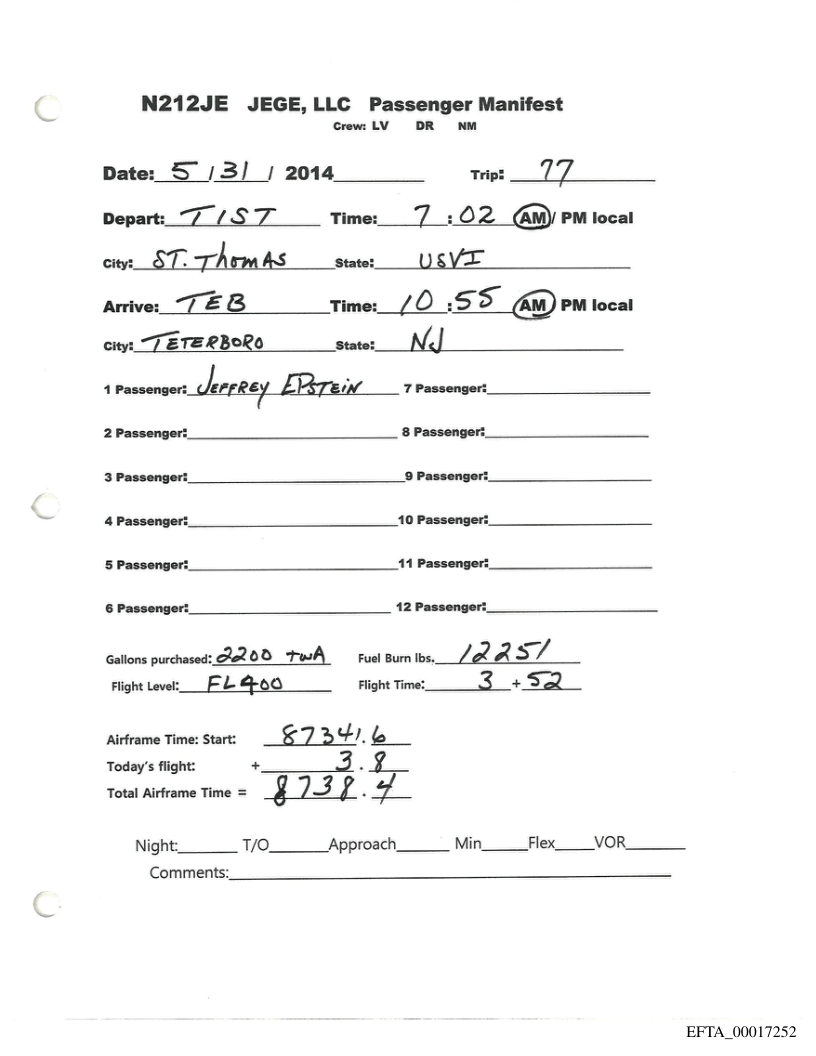 N212JE JEGE, LLC Passenger Manifest
Crew: LV DR NM
Date: 5 / 31 / 2014 Trip: 77
Depart: TIST Time: 7 : 02 AM / PM local
City: ST. Thomas State: USVI
Arrive: TEB Time: 10 : 55 AM PM local
City: TETERBORO State: NJ
1 Passenger: JEFFREY EPSTEIN 7 Passenger:
2 Passenger: 8 Passenger:
3 Passenger: 9 Passenger:
4 Passenger: 10 Passenger:
5 Passenger: 11 Passenger:
6 Passenger: 12 Passenger:
Gallons purchased: 2200 TWA Fuel Burn lbs. 12251
Flight Level: FL400 Flight Time: 3 + 52
Airframe Time: Start: 8734.6
Today's flight: + 3.8
Total Airframe Time = 8738.4
Night: T/O Approach Min Flex VOR
Comments:
EFTA_00017252